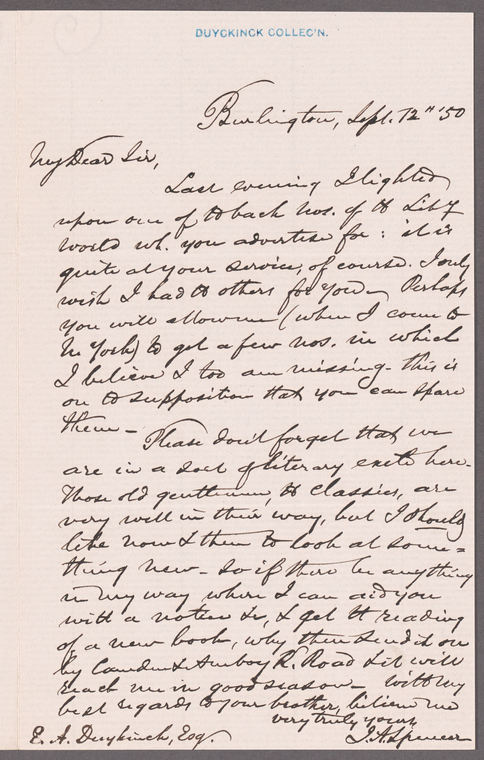 DUYCKINCK COLLEC'N.
Burlington, Sept. 12" '50
My Dear Sir,
Last evening I lighted
upon one of the back nos. of the Lity
World wh. you advertise for : it is
quite at your service, of course. I only
wish I had the others for you - Perhaps
you will allow me (when I come to
N. York) to get a few nos. in which
I believe I too am missing - this is
on the supposition that you can spare
them -
Please don't forget that we
are in a sort of literary exile here.
Those old gentlemen, the classics, are
very well in their way, but I should
like now & then to look at some=
thing new - so if there be anything
in my way where I can aid you
with a notice &c, & get the reading
of a new book, why then send it on
by Camden & Amboy R. Road & it will
reach me in good season - With my
best regards to your brother, believe me
very truly yours,
E. A. Duyckinck, Esq. J. A. Spencer